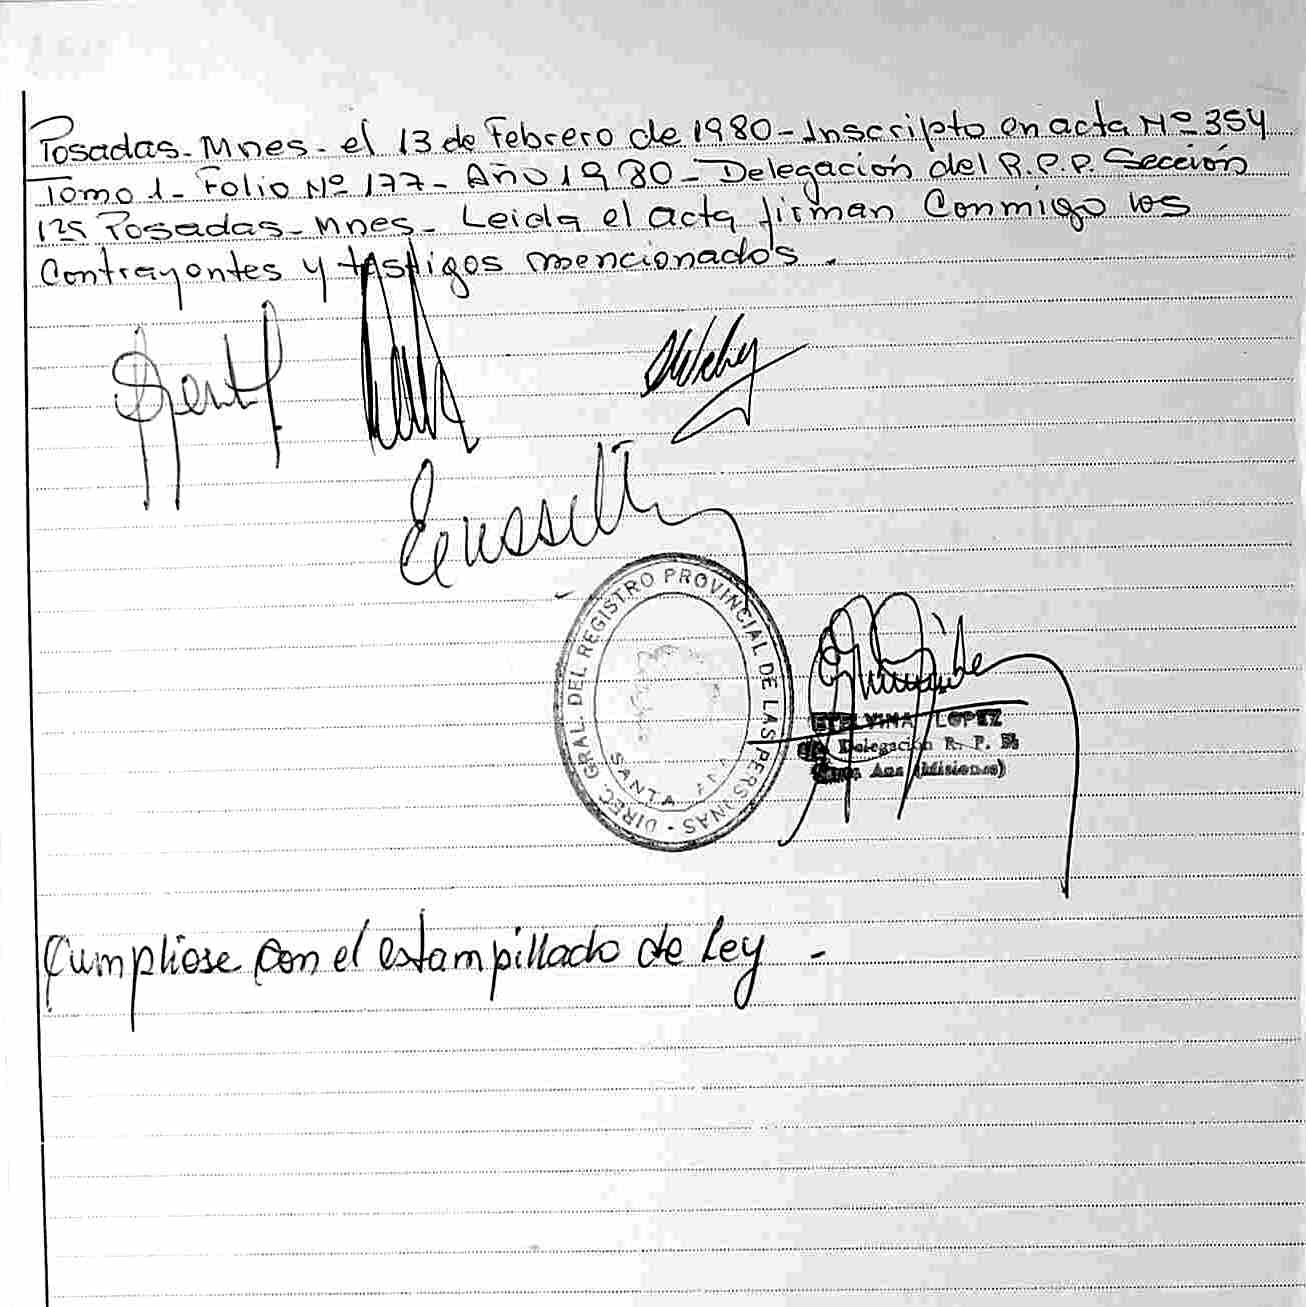 Posadas - Mnes - el 13 de Febrero de 1980 - Inscripto en acta Nº 354
Tomo 1 - Folio Nº 177 - Año 1980 - Delegación del R.P.P. Sección
1ra Posadas - Mnes - Leida el acta firman Conmigo los
Contrayentes y testigos mencionados.
DIREC. GRAL. DEL REGISTRO PROVINCIAL DE LAS PERSONAS
SANTA ANA
ETELVINA LOPEZ
Delegación R. P. P.
Santa Ana (Misiones)
Cumpliose con el estampillado de Ley -